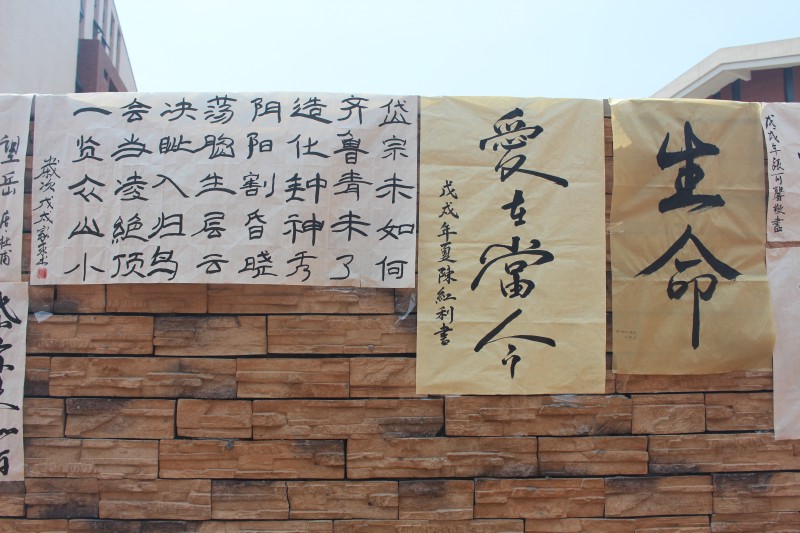 生命
愛在當今
戊戌年夏陳紅利書
岱宗未如何
齐鲁青未了
造化鈡神秀
阴阳割昏晓
荡胸生层云
决眦入归鸟
会当凌絶顶
一览众山小
歲次戊戌
望岳 唐杜甫
戊戌年張可馨